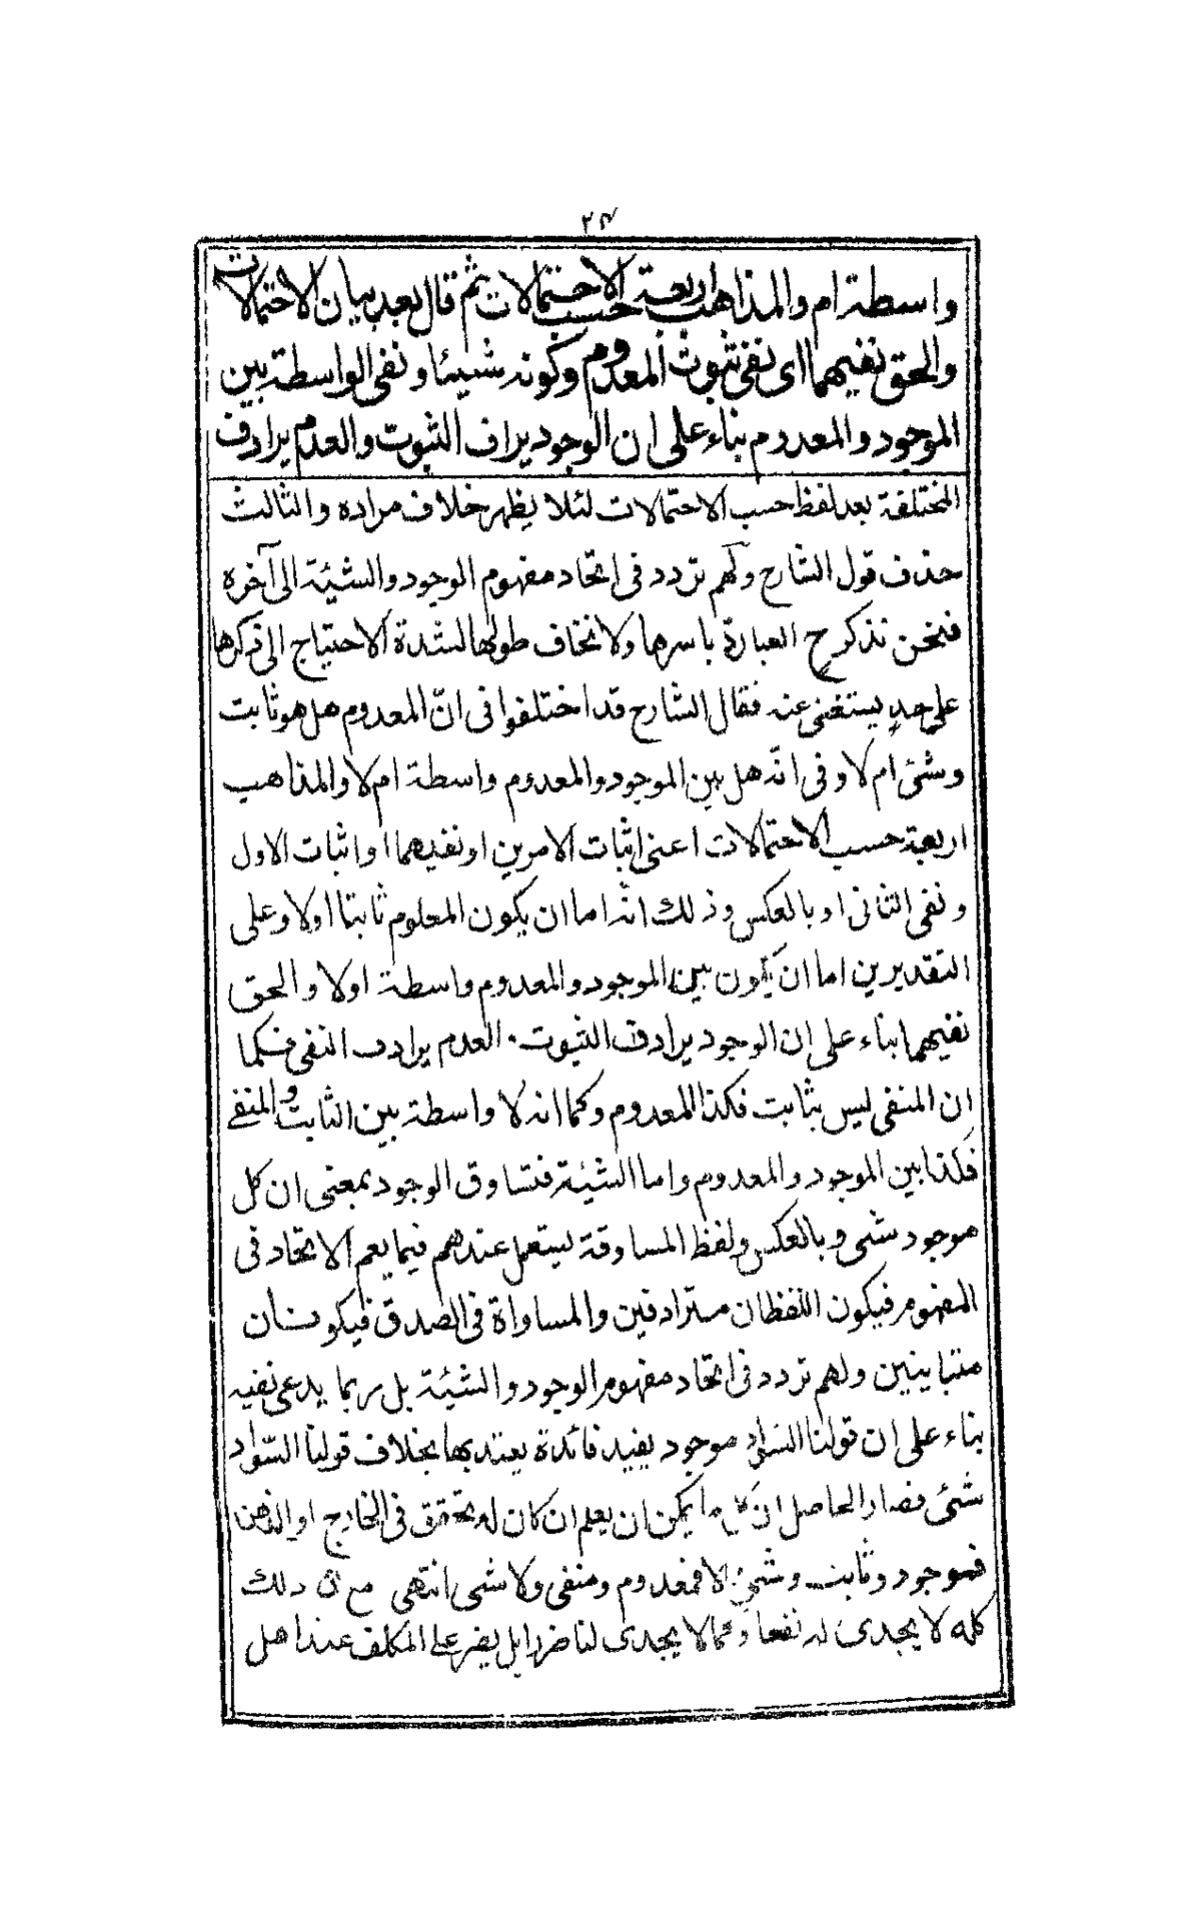 ٢٤
واسطة ام والمذاهب اربعة حسب الاحتمالات ثم قال بعد بيان الاحتمالات
والحق نفيهما اى نفى ثبوت المعدوم وكونه شيئا ونفى الواسطة بين
الموجود والمعدوم بناء على ان الوجود يراف الثبوت والعدم يرادف
المختلفة بعد لفظ حسب الاحتمالات لئلا يظهر خلاف مراده والثالث
حذف قول الشارح ولهم تردد فى اتحاد مفهوم الوجود والشيئة الى آخره
فنحن نذكر ح العبارة باسرها ولا نخاف طولها لشدة الاحتياج الى ذكرها
على حد يستغنى عنه فقال الشارح قد اختلفوا فى انّ المعدوم هل هو ثابت
وشئ ام لا وفى انّه هل بين الموجود والمعدوم واسطة ام لا والمذاهب
اربعة حسب الاحتمالات اعنى اثبات الامرين او نفيهما او اثبات الاول
ونفى الثانى او بالعكس وذلك انه اما ان يكون المعلوم ثابتا اولا وعلى
التقديرين اما ان يكون بين الموجود والمعدوم واسطة اولا والحق
نفيهما بناء على ان الوجود يرادف الثبوت. العدم يرادف النفى فكما
ان المنفى ليس بثابت فكذا المعدوم وكما انه لا واسطة بين الثابت والمنفے
فكذا بين الموجود والمعدوم واما الشيئة فتساوق الوجود بمعنى ان كل
موجود شى وبالعكس ولفظ المساوقة يستعمل عندهم فيما يعم الاتحاد فى
المفهوم فيكون اللفظان مترادفين والمساواة فى الصدق فيكونان
متباينين ولهم تردد فى اتحاد مفهوم الوجود والشيئة بل ربما يدعى نفيه
بناء على ان قولنا السواد موجود يفيد فائدة يعتد بها بخلاف قولنا السّواد
شئ فصار الحاصل ان كل ما يمكن ان يعلم ان كان له تحقق فى الخارج او الذهن
فموجود وثابت وشئ والا فمعدوم ومنفى ولا شى انتهى مع ان ذلك
كله لا يجدى له نفعا ومما لا يجدى لنا ضررا بل يضر على المكلف عند اهل